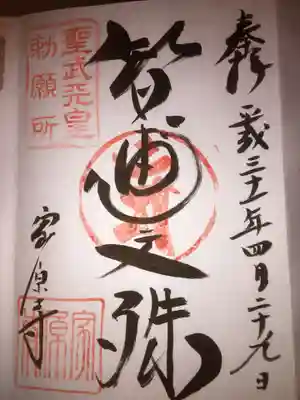 奉拝
平成三十一年四月二十九日
智恵文殊
聖武天皇
勅願所
家原寺
家原